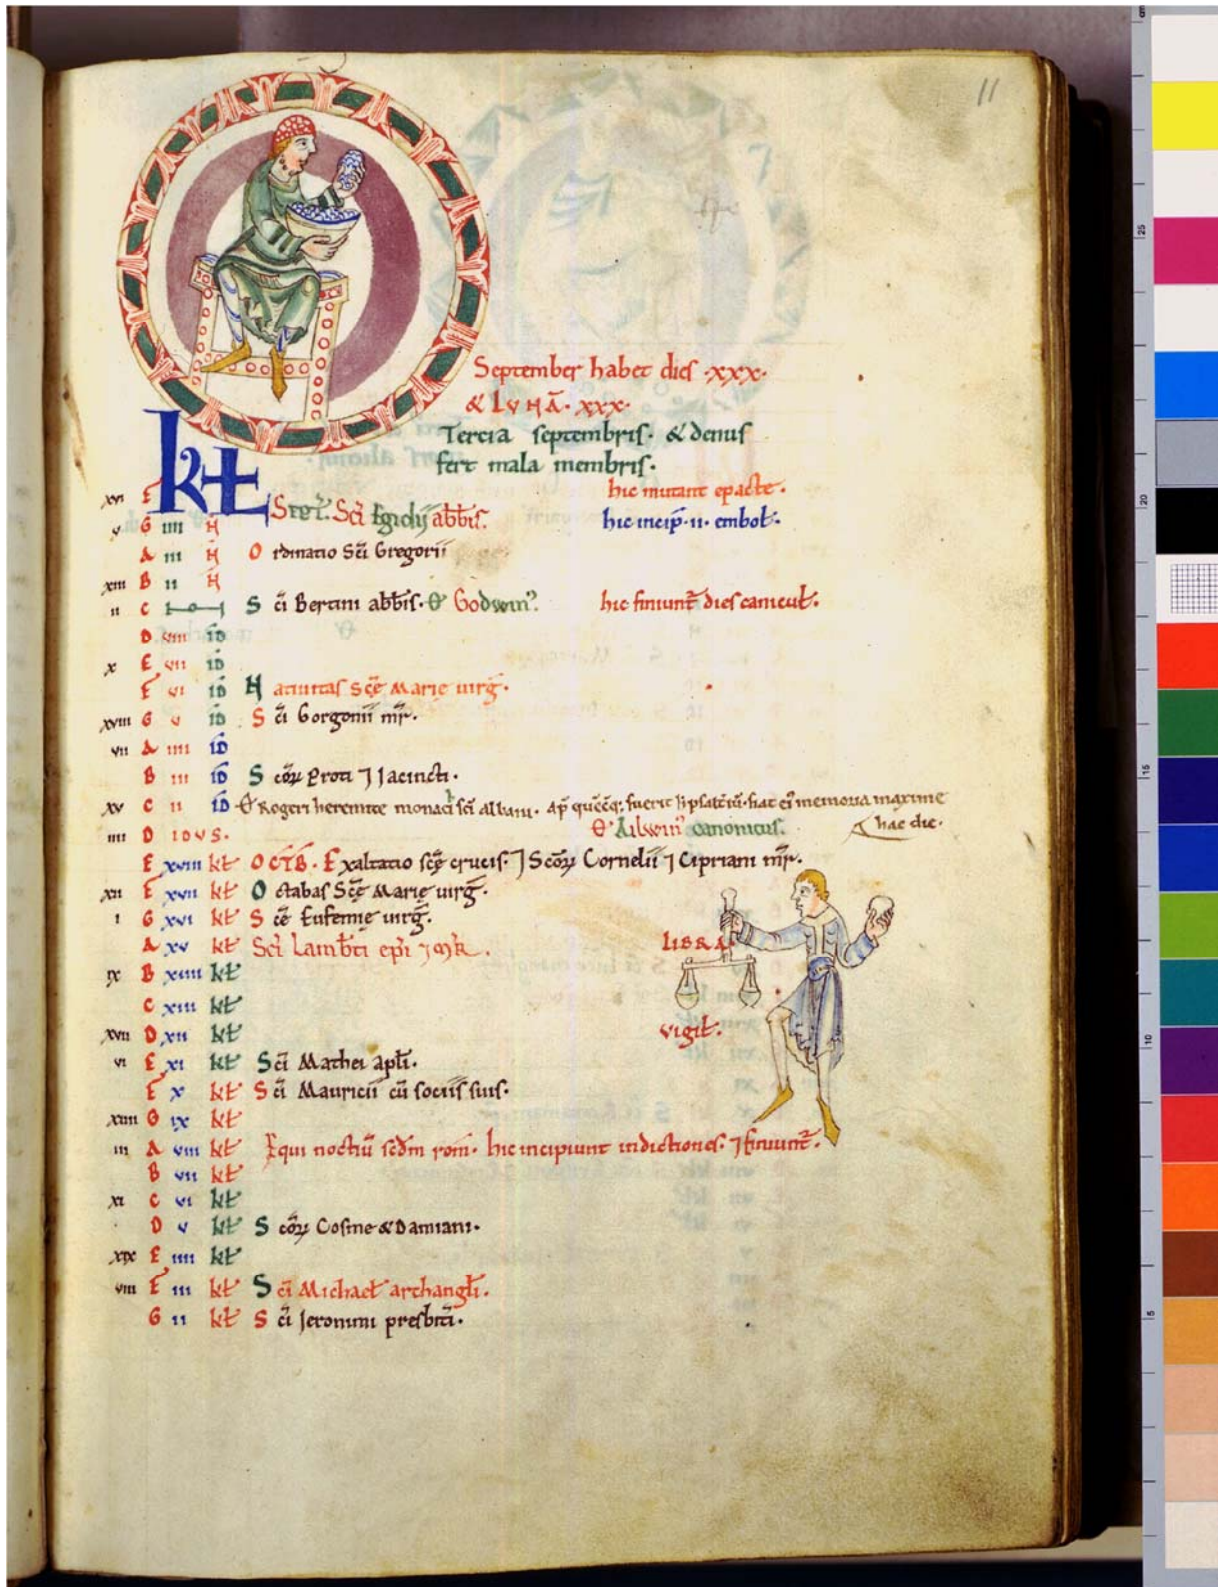 11
September habet dies ·xxx·
& LVNĀ· xxx·
Tercia septembris· & denus
fert mala membris·
hic mutant epacte·
xvi F kł S Sci Egidij abb̄is· hic incip̄·ii· embol·
v G iiii N
A iii N Ordinatio Sc̄i Gregorii
xiii B ii N
ii C Sc̄i Bertini abb̄is· & Godwin᾽· hic finiunt̄ dies canicul·
D viii id
x E vii id
F vi id Natiuitas Scę Marie uirḡ·
xviii G v id Sc̄i Gorgonii mr̄·
vii A iiii id
B iii id Scōꝝ Proti ⁊ Jacincti·
xv C ii id & Rogeri heremite monaci sc̄i albani· Ap̄ quēcq; fuerit h psalt̄iū· fiat ei᾽ memoria maxime
hac die·
iiii D IDVS· & Ailwin᾽ canonicus·
E xviii kł OCTB· Exaltatio scę crucis· ⁊ Scōꝝ Cornelii ⁊ Cipriani mr̄·
xii F xvii kł Octabas Scę Marie uirḡ·
i G xvi kł Scę Eufemię uirḡ·
A xv kł Sci Lamb̄ti ep̄i ⁊ mr̄· LIBRA
ix B xiiii kł
C xiii kł
xvii D xii kł vigił·
vi E xi kł Sc̄i Mathei apl̄i·
F x kł Sc̄i Mauricii cū sociis suis·
xiiii G ix kł
iii A viii kł Equi noctiū scd̄m rom̄· hic incipiunt indictiones· ⁊ finiunt̄·
B vii kł
xi C vi kł
D v kł Scōꝝ Cosme & Damiani·
xix E iiii kł
viii F iii kł Sc̄i Michael archangl̄i·
G ii kł Sc̄i Jeronimi presbit̄i·
cm
25
20
15
10
5